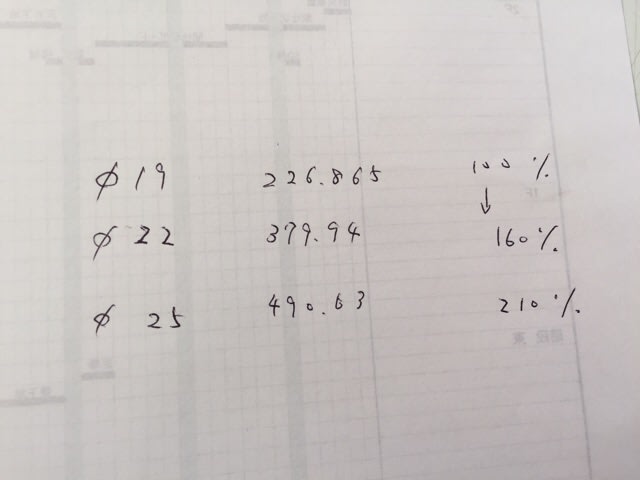 φ 19 226.865 100 %
↓
φ 22 379.94 160 %
φ 25 490.63 210 %